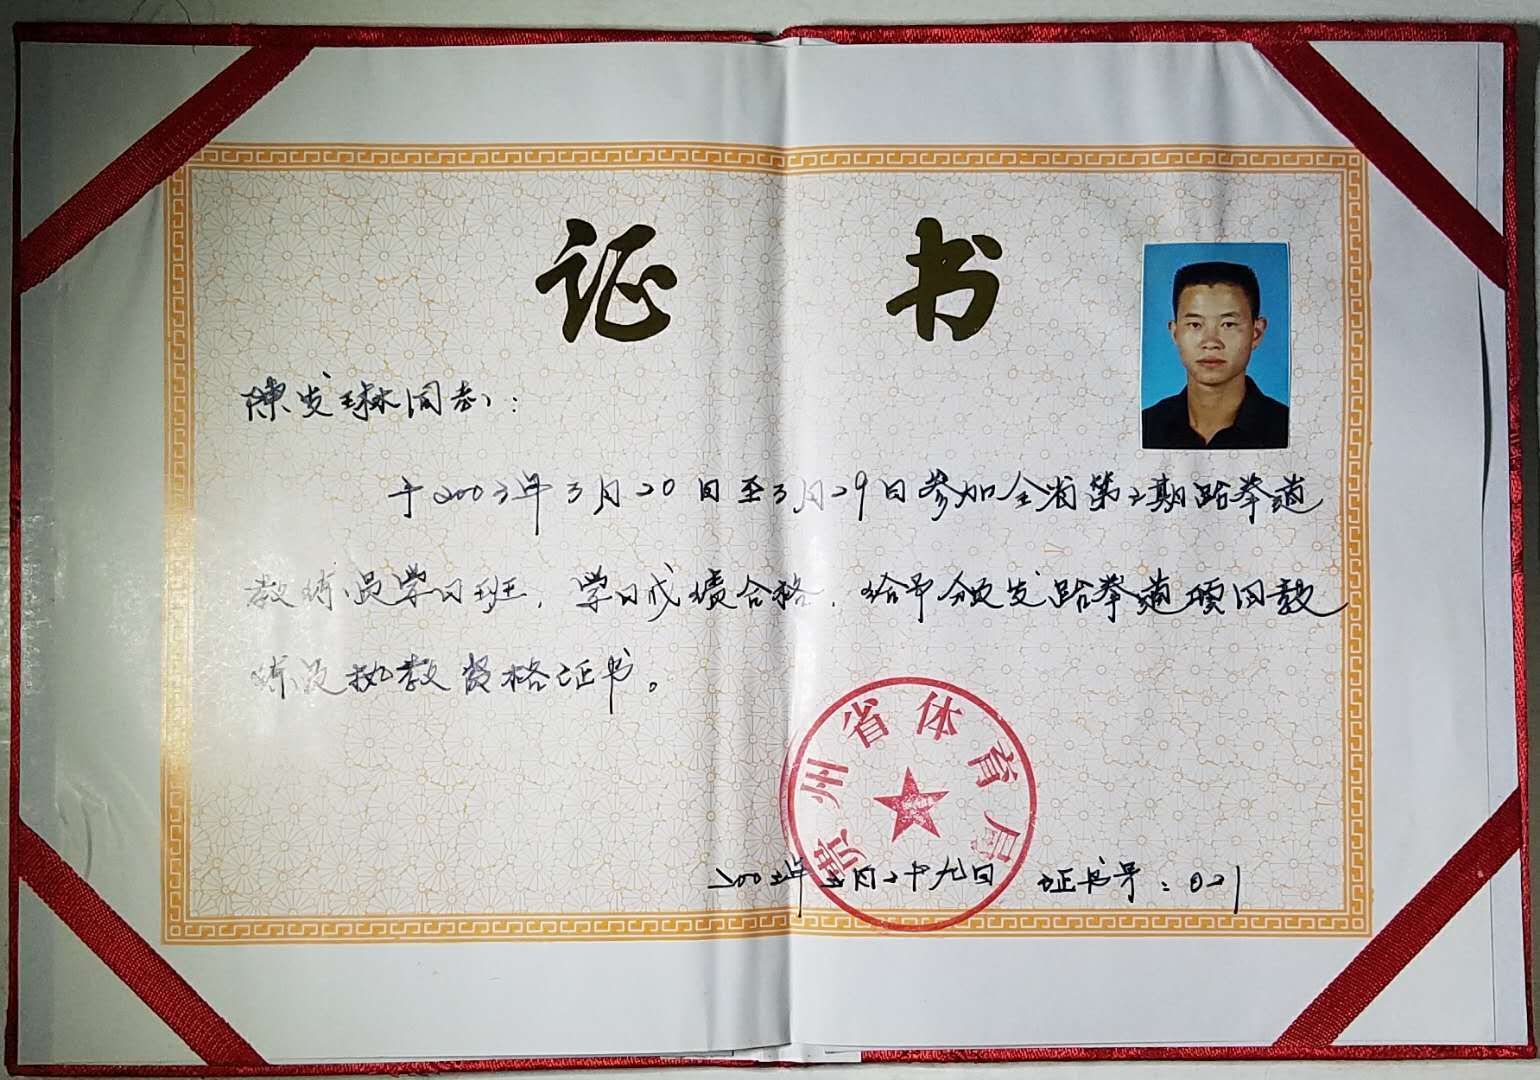 证书
陳发琳同志：
于2003年3月20日至3月29日参加全省第二期跆拳道
教练员学习班，学习成绩合格，给予颁发跆拳道项目教
练员执教资格证书。
贵州省体育局
二00三年三月二十九日 证书号：021